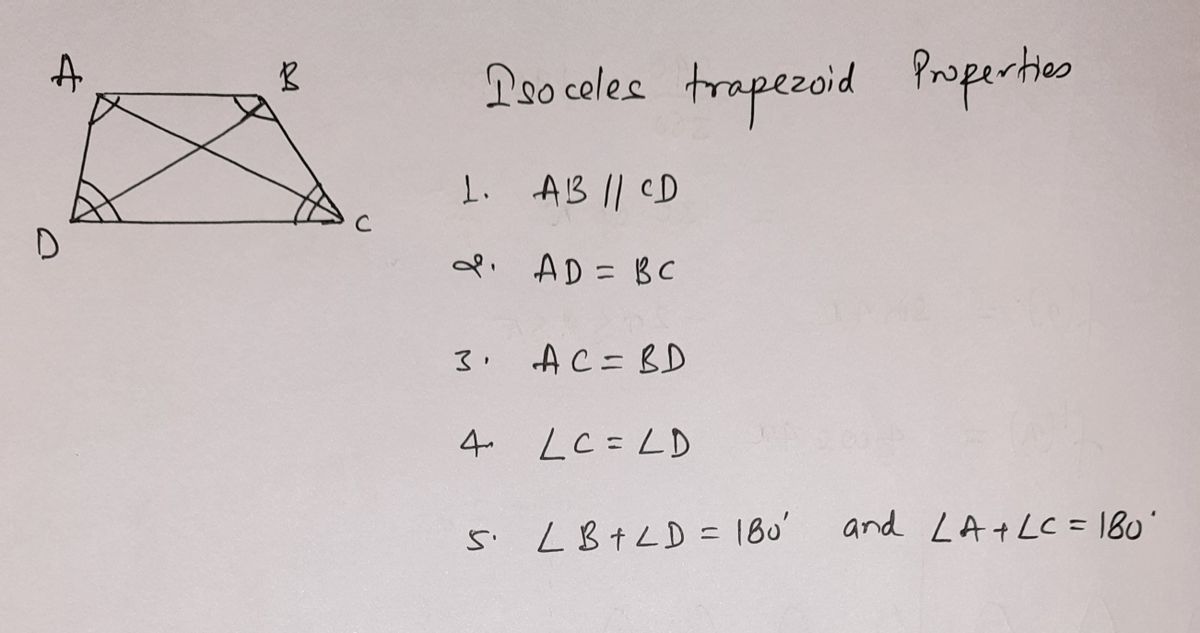 A B
D C
Isoceles trapezoid Properties
1. AB // CD
2. AD = BC
3. AC = BD
4. ∠C = ∠D
5. ∠B + ∠D = 180° and ∠A + ∠C = 180°